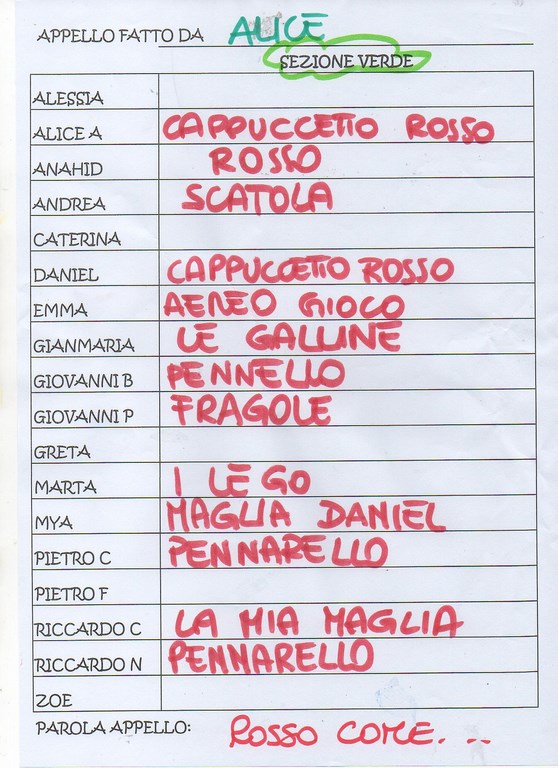 APPELLO FATTO DA ALICE
SEZIONE VERDE
ALESSIA
ALICE A CAPPUCCETTO ROSSO
ANAHID ROSSO
ANDREA SCATOLA
CATERINA
DANIEL CAPPUCCETTO ROSSO
EMMA AEREO GIOCO
GIANMARIA LE GALLINE
GIOVANNI B PENNELLO
GIOVANNI P FRAGOLE
GRETA
MARTA I LEGO
MYA MAGLIA DANIEL
PIETRO C PENNARELLO
PIETRO F
RICCARDO C LA MIA MAGLIA
RICCARDO N PENNARELLO
ZOE
PAROLA APPELLO: ROSSO COME...